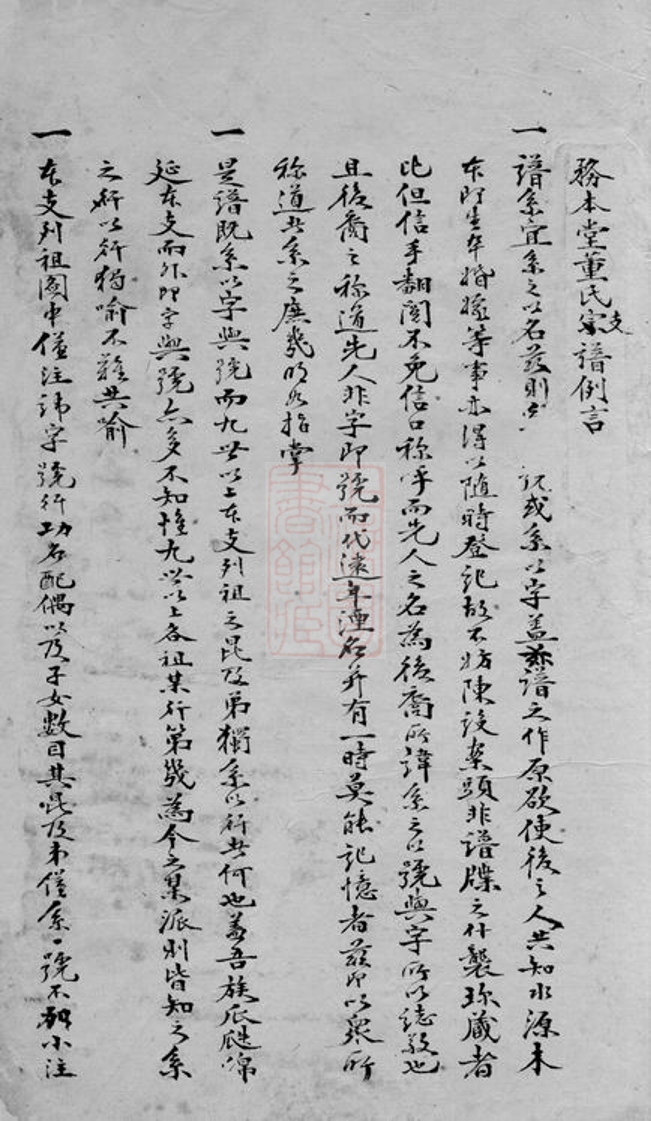 務本堂董氏宗支譜例言
一 譜系宜系之以名茲則 或系以字蓋茲譜之作原欲使後之人共知水源木
本即生卒婚嫁等事亦得以隨時登記故不妨陳設案頭非譜牒之什襲珍藏者
比但信手翻閱不免信口称呼而先人之名為後裔所諱系之以號與字所以誌敬也
且後裔之称道先人非字即號而代遠年湮名并有一時莫能記憶者茲即以眾所
称道者系之庶幾明如指掌
一 是譜既系以字與號而九世以上本支列祖之昆及弟獨系以行者何也蓋吾族瓜瓞綿
延本支而外即字與號亦多不知惟九世以上各祖某行第幾為今之某派則皆知之系
之所以行獨喻不難共喻
一 本支列祖圖中僅注諱字號行功名配偶以及子女數目其昆及弟僅系一號不 小注